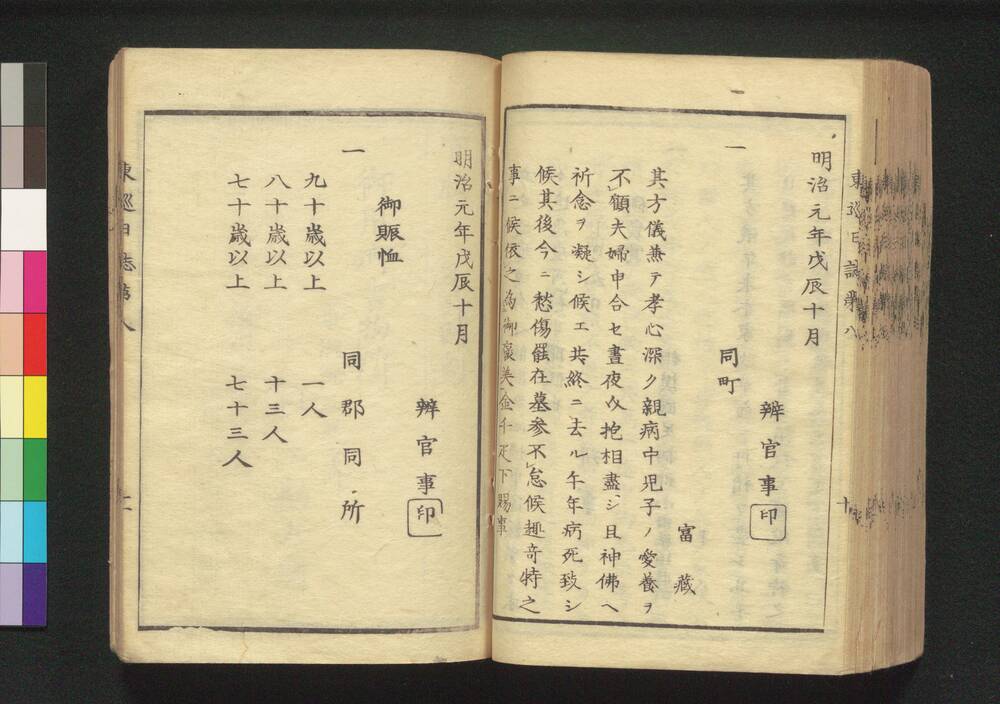 明治元年戊辰十月
辨官事 印
一
同町
富藏
其方儀兼テ孝心深ク親病中児子ノ愛養ヲ
不顧夫婦申合セ晝夜抱相盡シ且神佛ヘ
祈念ヲ凝シ候エ共終ニ去ル午年病死致シ
候其後今ニ愁傷罷在墓参不怠候趣奇特之
事ニ候依之為御褒美金千疋下賜事
明治元年戊辰十月
辨官事 印
一
同郡同所
御賑恤
九十歳以上 一人
八十歳以上 十三人
七十歳以上 七十三人
東巡日誌第八
十
東巡日誌第八